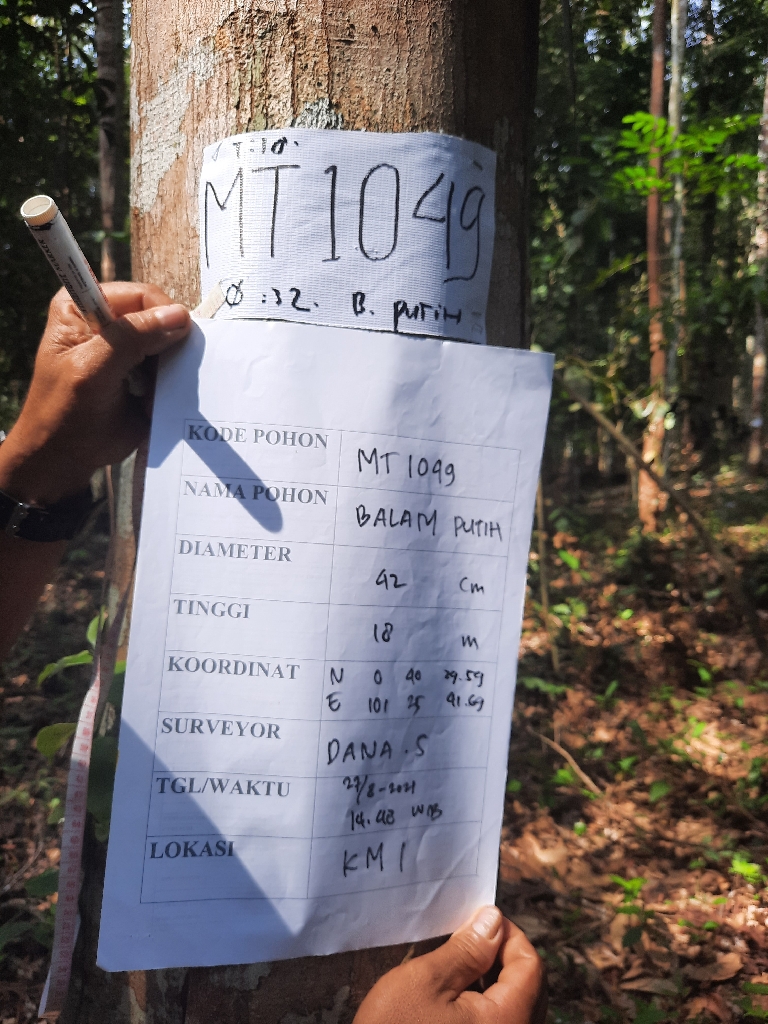 T:18.
MT1049
Ø:32. B. PUTIH
KODE POHON MT 1049
NAMA POHON BALAM PUTIH
DIAMETER 42 Cm
TINGGI 18 m
KOORDINAT N 0 40 29.59
E 101 25 41.69
SURVEYOR DANA.S
TGL/WAKTU 27/8-2021
14.48 WIB
LOKASI KM 1